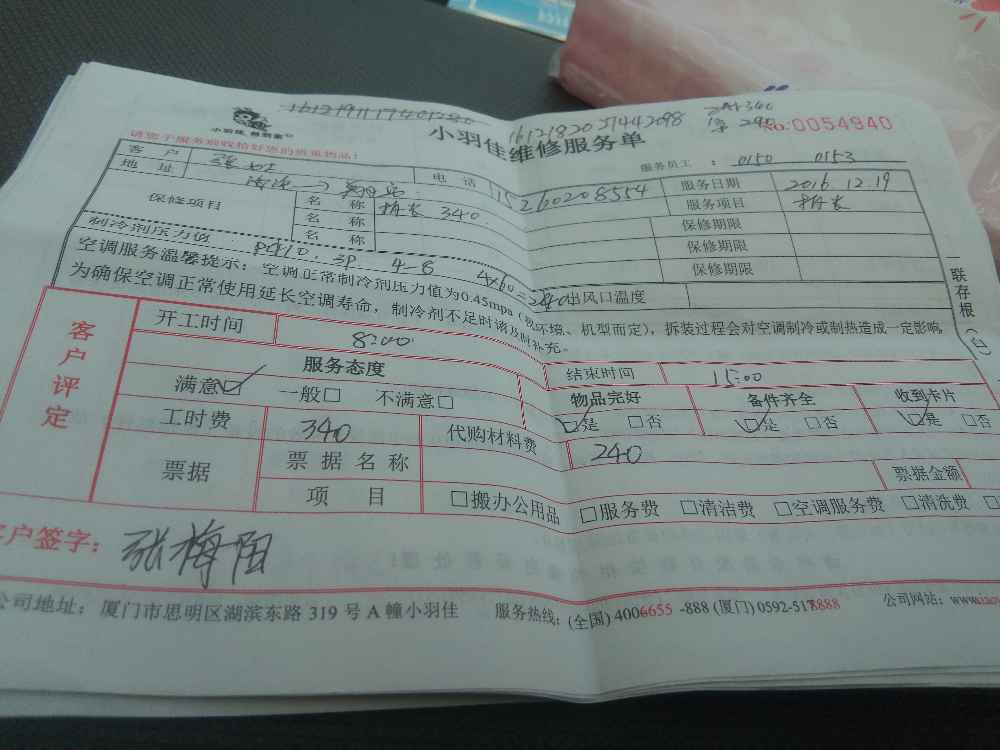 16121820 51442098
No:0054940
240
小羽佳 帮到家
小羽佳维修服务单
服务员工 : 0150 0153
客 户
电 话 15260208554
服务日期 2016.12.19
地 址
服务项目 拆装
保修项目
名 称 拆装 340
保修期限
名 称
保修期限
名 称
保修期限
制冷剂压力值
3P 4-8 4×60=240
出风口温度
空调服务温馨提示：空调正常制冷剂压力值为0.45mpa（视环境、机型而定），拆装过程会对空调制冷或制热造成一定影响
为确保空调正常使用延长空调寿命，制冷剂不足时请及时补充。
联存根（白）
客户评定
开工时间 8:00
结束时间 15:00
服务态度
物品完好 备件齐全 收到卡片
满意☑ 一般□ 不满意□
☑是 □否 ☑是 □否 ☑是 □否
工时费 340 代购材料费 240
票据
票据名称
票据金额
项 目 □搬办公用品 □服务费 □清洁费 □空调服务费 □清洗费 □
客户签字： 张梅阳
公司地址：厦门市思明区湖滨东路 319 号 A 幢小羽佳 服务热线：(全国) 4006655 -888 (厦门) 0592-5178888 公司网站：www.